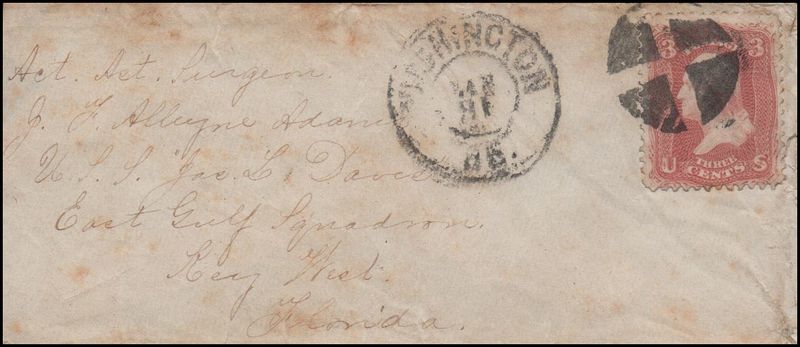 Act. Ast. Surgeon.
J. F. Alleyne Adams
U. S. S. "Jas. L. Davis"
East Gulf Squadron.
Key West.
Florida.
WASHINGTON
3 3
U THREE CENTS S